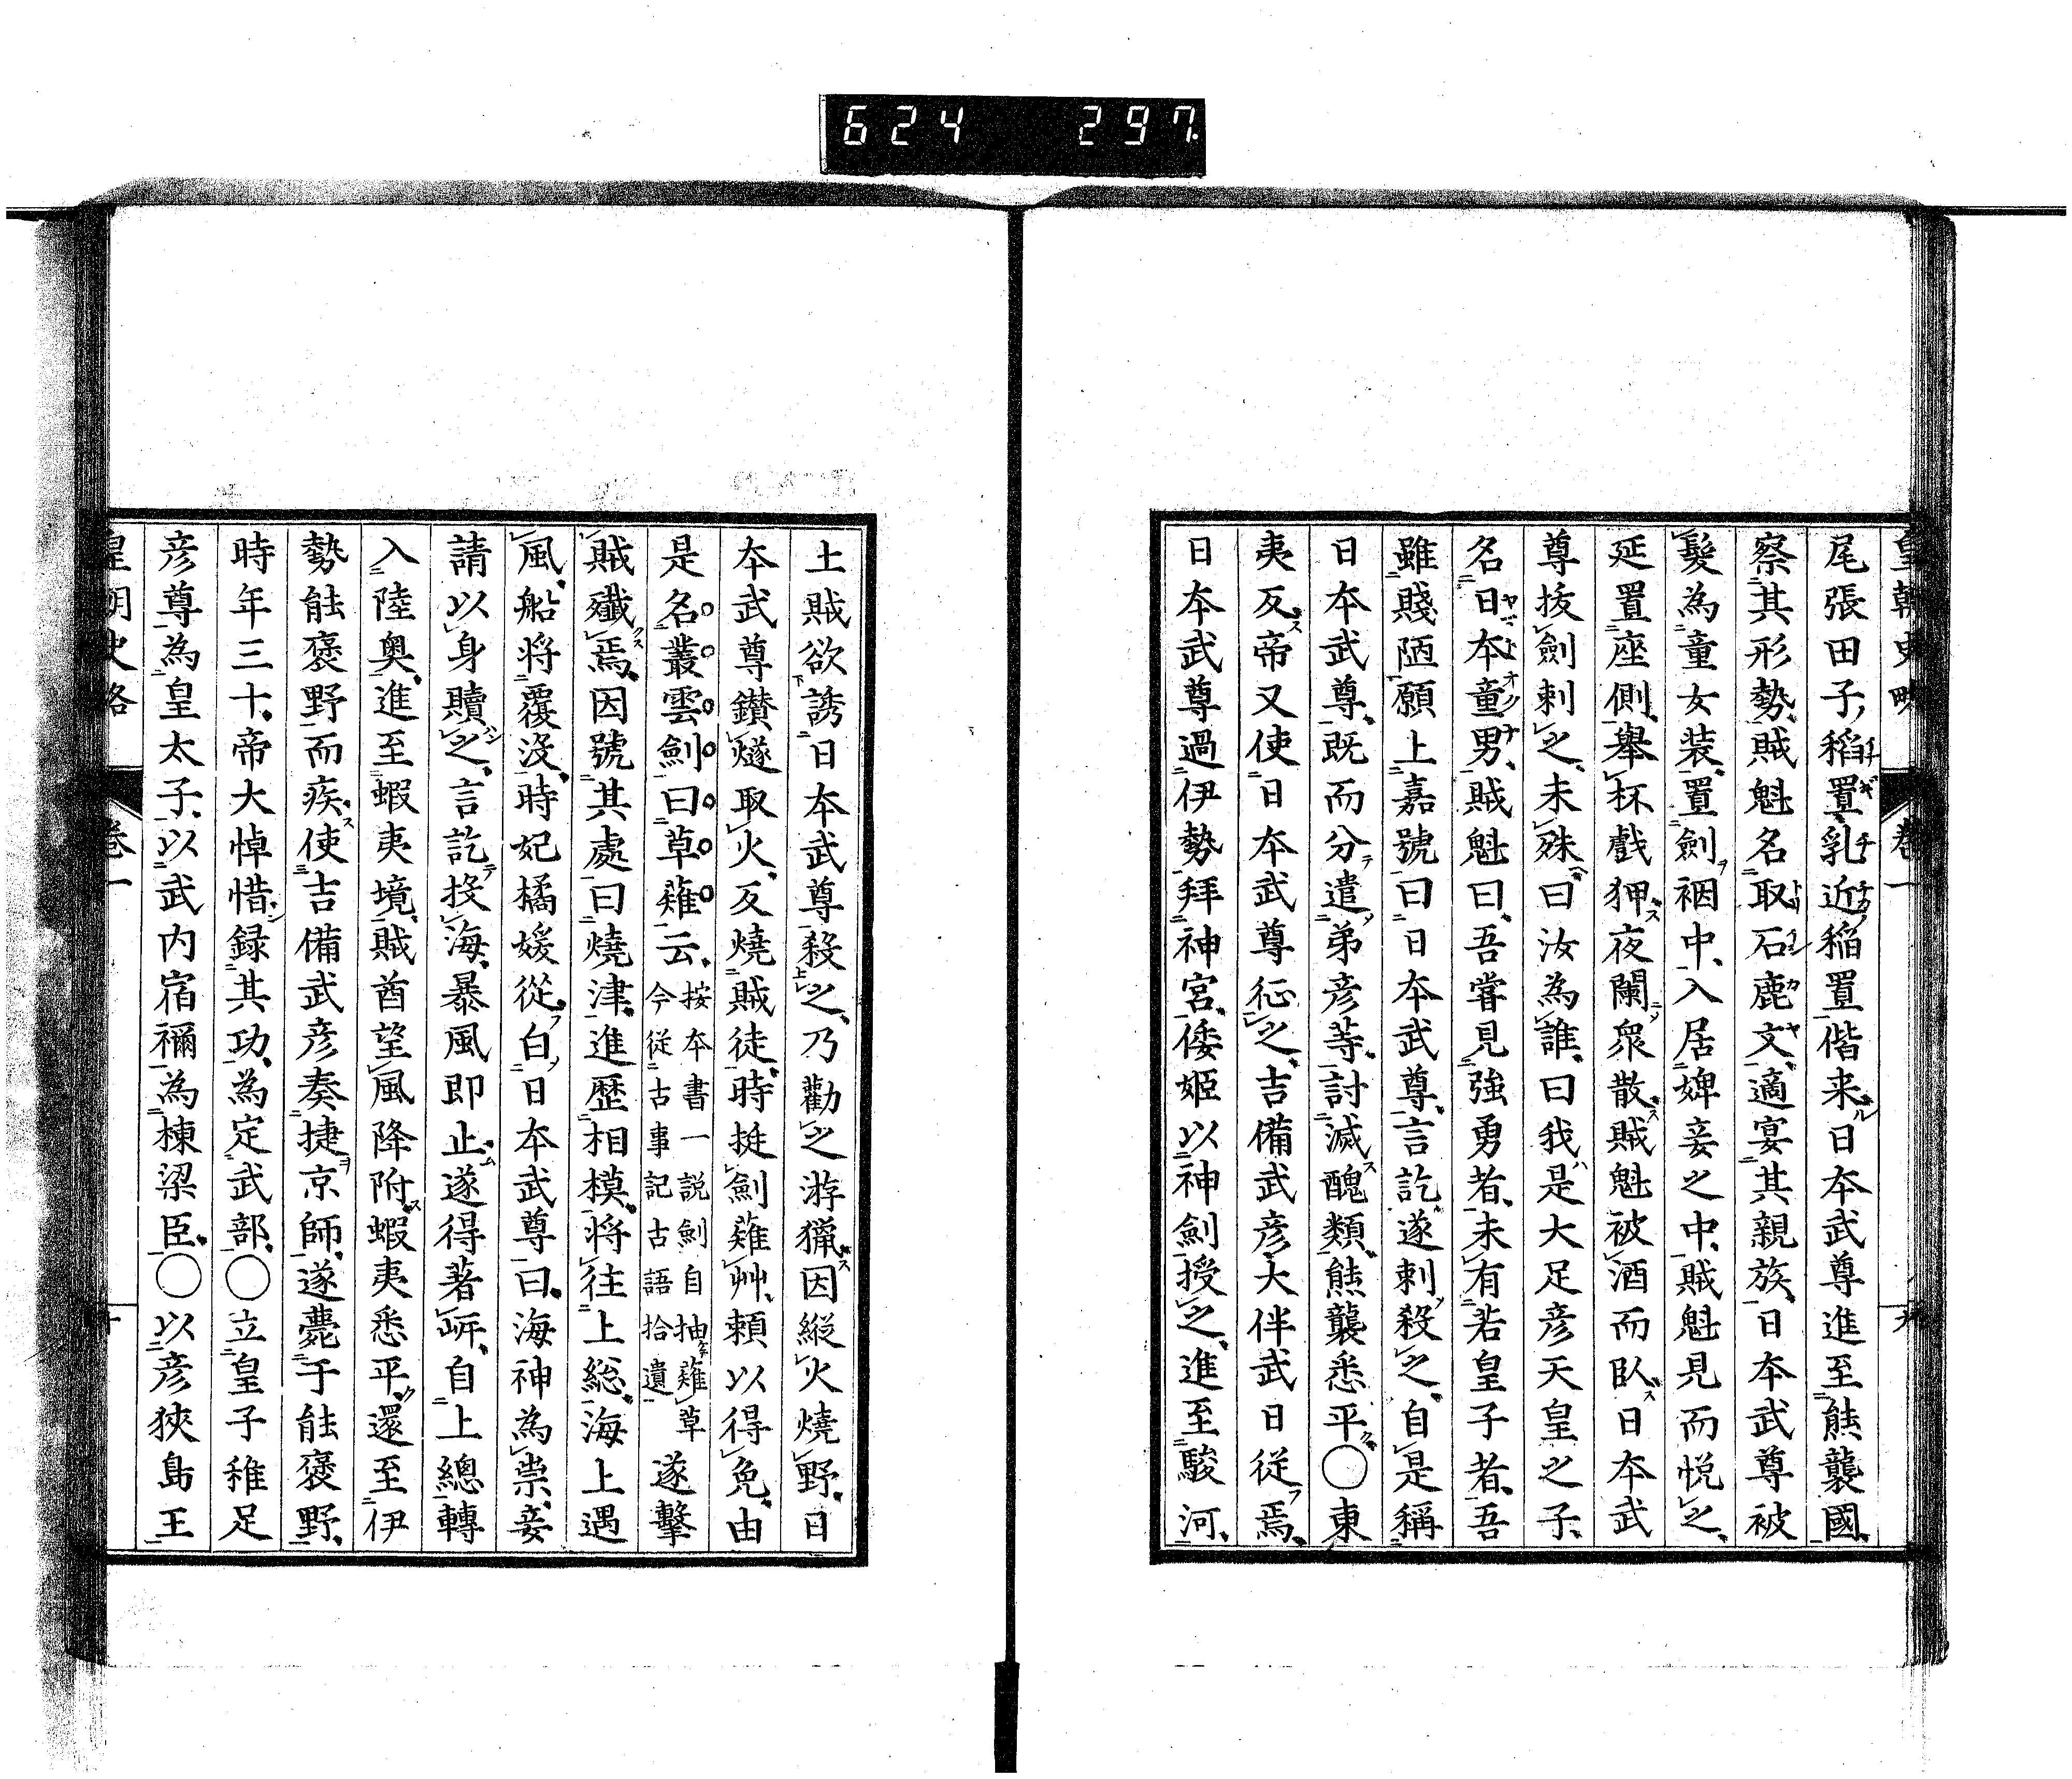 624 297
皇朝史略 卷一 九
尾張田子稲置乳近稲置偕来日本武尊進至熊襲國
察其形勢賊魁名取石鹿文適宴其親族日本武尊被
髮為童女装置劍裀中入居婢妾之中賊魁見而悦之
延置座側舉杯戲狎夜闌衆散賊魁被酒而臥日本武
尊拔劍刺之未殊曰汝為誰曰我是大足彦天皇之子
名日本童男賊魁曰吾嘗見強勇者未有若皇子者吾
雖賤陋願上嘉號曰日本武尊言訖遂刺殺之自是稱
日本武尊既而分遣弟彦等討滅醜類熊襲悉平○東
夷反帝又使日本武尊征之吉備武彦大伴武日從焉
日本武尊過伊勢拜神宮倭姫以神劍授之進至駿河
土賊欲誘日本武尊殺之乃勸之游獵因縱火燒野日
本武尊鑚燧取火反燒賊徒時挺劍薙艸頼以得免由
是名叢雲劍曰草薙云按本書一説劍自抽薙草今從古事記古語拾遺遂擊
賊殲焉因號其處曰燒津進歷相模将往上総海上遇
風船将覆没時妃橘媛從白日本武尊曰海神為祟妾
請以身贖之言訖投海暴風即止遂得著岸自上總轉
入陸奥進至蝦夷境賊酋望風降附蝦夷悉平還至伊
勢能褒野而疾使吉備武彦奏捷京師遂薨于能褒野
時年三十帝大悼惜録其功為定武部○立皇子稚足
彦尊為皇太子以武内宿禰為棟梁臣○以彦狭島王
皇朝史略 卷一 十